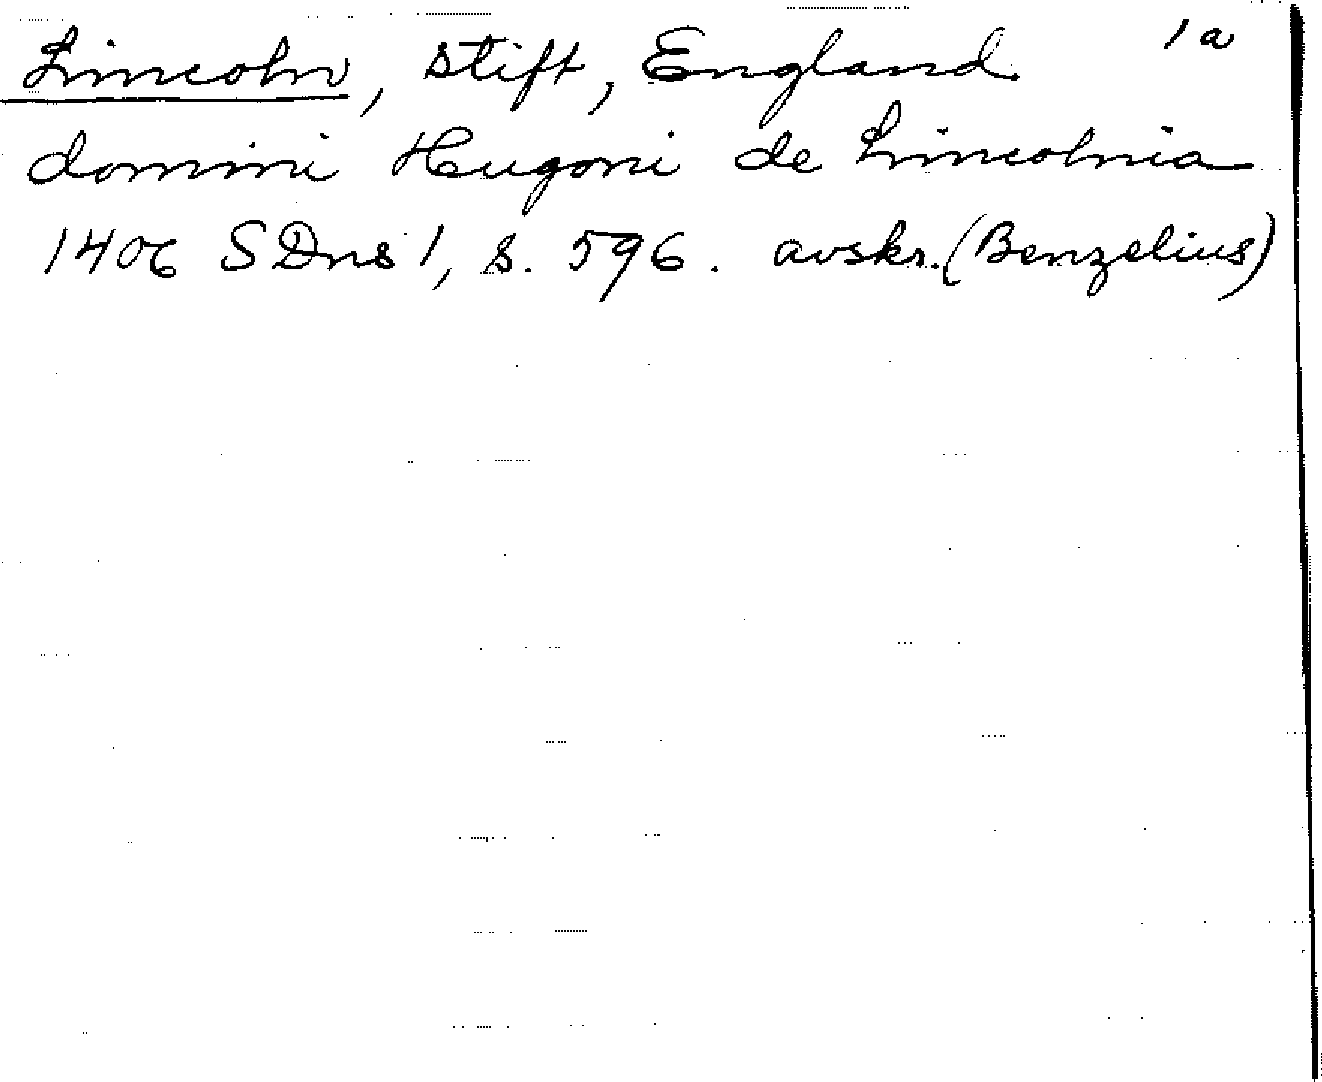 Lincoln, stift, England 1a
domini Hugoni de Lincolnia
1406 SDns 1, s. 596. avskr. (Benzelius)